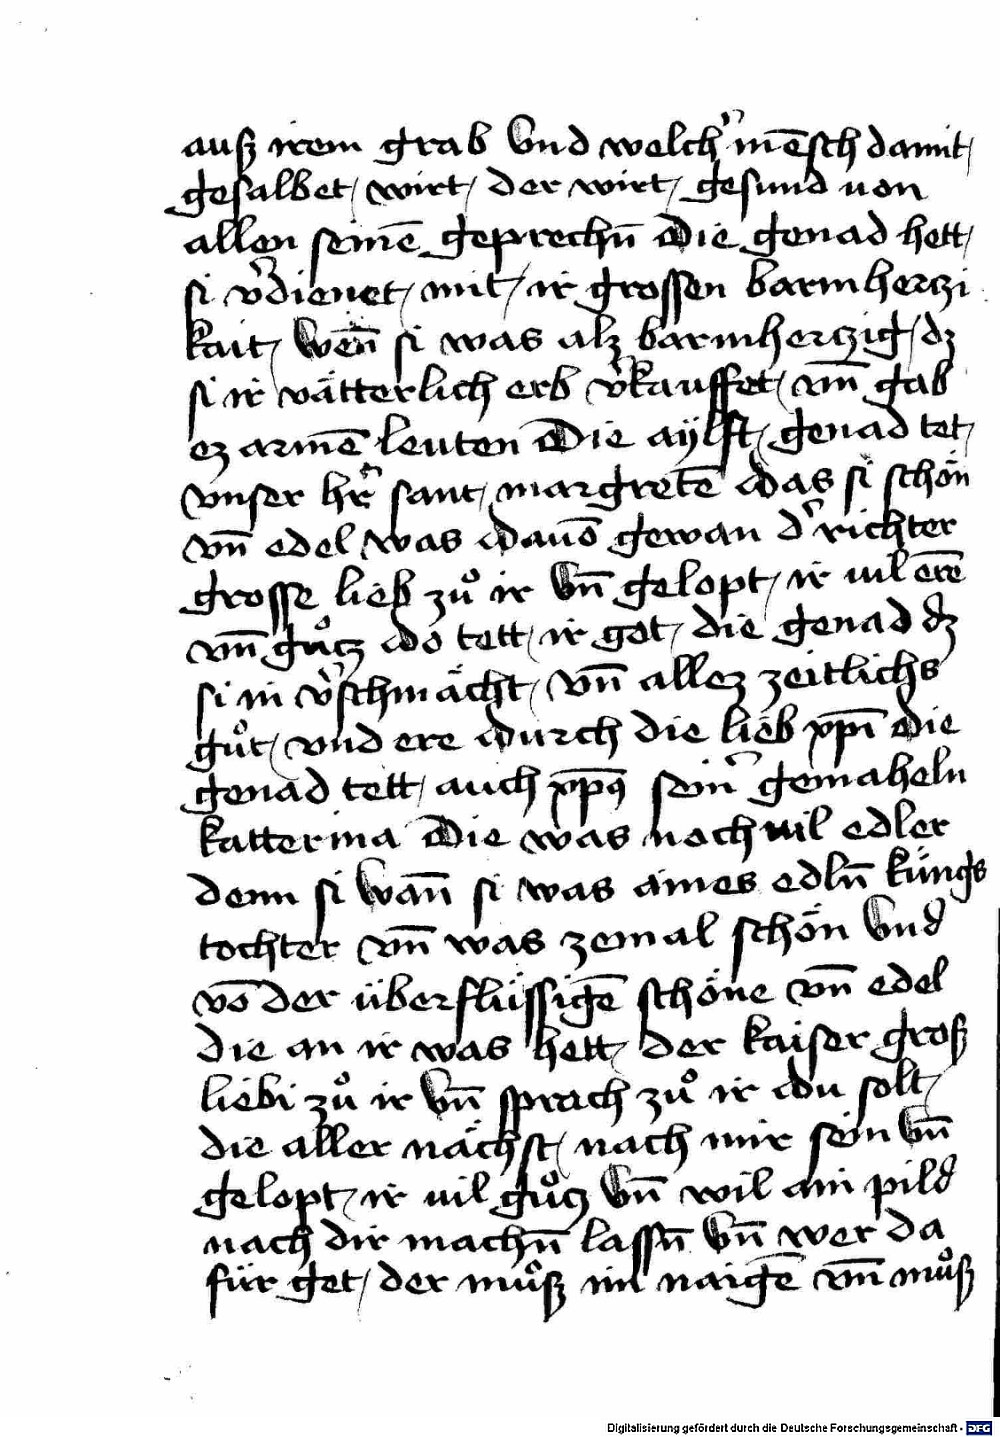 ausz irem grab Vnd welchˀ mēsch damit
gesalbet wirt der wirt gesund uon
allen seinē geprechn̄ Die genad hett
si vˀdienet mit ir grossen barmherczi
kait Wen̄ si was alz barmherczig dz
si ir vätterlich erb vˀkauffet vm̄ gab
ez armē leuten Die aÿlft genad tet
vnser hrˀ sant margretē das si schön
vn̄ edel was dauō gewan dˀ richter
grosse lieb zuͦ ir Vn̄ gelopt ir uil erē
vn̄ guͦcz do tett ir got die genad dz
si in vˀschmächt Vn̄ allez zeitlichs
guͦt vnd ere durch die lieb xp̄i Die
genad tett auch xp̄s seinˀ gemaheln
katterina Die was noch uil edler
denn si Wan̄ si was aines edln̄ küngs
tochter vn̄ was zemal schön Vnd
vō der überflüssigē schöne vn̄ edel
die an ir was hett der kaiser grosz
liebi zuͦ ir Vn̄ sprach zuͦ ir du solt
die aller nächst nach mir sein Vn̄
gelopt ir uil guͦcz Vn̄ wil ain pild
nach dir machn̄ lassn̄ Vn̄ wer da
für get der muͦsz im naigē vm̄ muͦsz
Digitalisierung gefördert durch die Deutsche Forschungsgemeinschaft - DFG